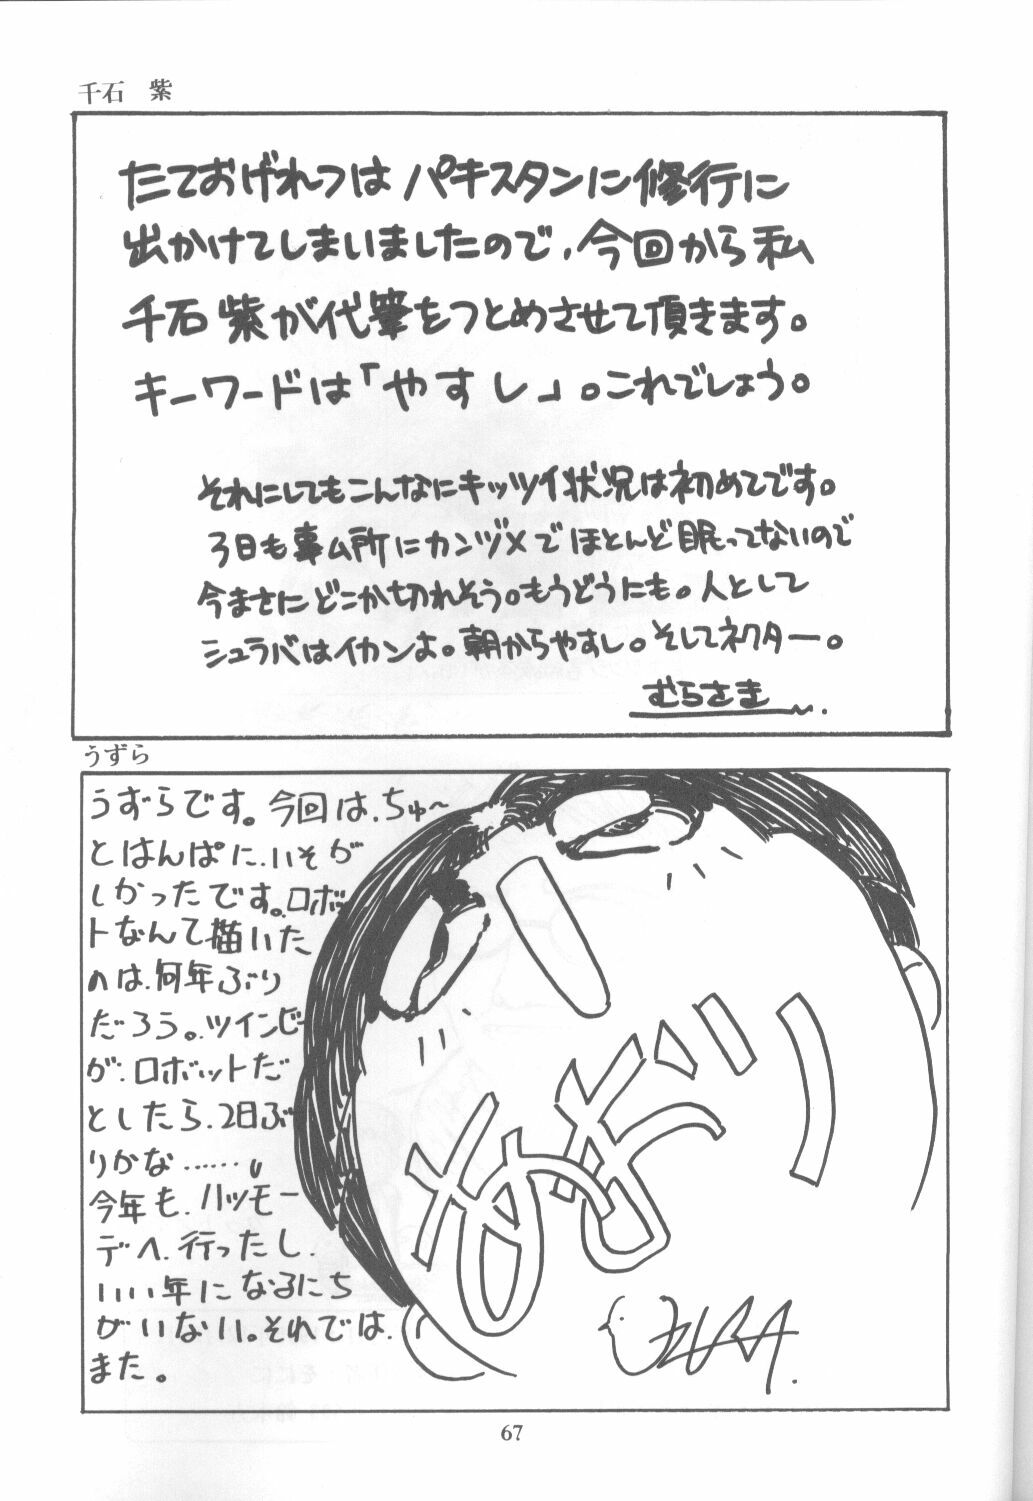 千石　紫
たておげれつは パキスタンに修行に
出かけてしまいましたので,今回から私
千石紫が代筆をつとめさせて頂きます。
キーワードは「やすし」。これでしょう。
それにしてもこんなにキッツイ状況は初めてです。
3日も事ム所にカンヅメでほとんど眠ってないので
今まさにどこか切れそう。もうどうにも。人として
シュラバはイカンよ。朝からやすし。そしてネクター。
むらさき
うずら
うずらです。今回は、ちゅ〜
とはんぱに、いそが
しかったです。ロボッ
トなんて描いた
のは、何年ぶり
だろう。ツインビー
が、ロボットだ
としたら、2日ぶ
りかな……。
今年も、ハツモー
デへ、行ったし、
いい年になるにち
がいない。それでは、
また。
UZURA.
67